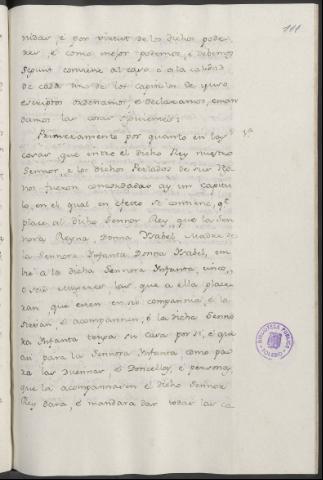 111
nidas, e por virtut de los dichos pode
res, e como mejor podemos, e debemos
segunt conviene al caso e a la calidad
de cada uno de los capitulos de yuso
escriptos ordenamos, e declaramos, e man
damos las cosas siguientes:
Primeramente por quanto en las
cosas que entre el dicho Rey nuestro
Sennor, e los dichos Perlados de sus Re
nos fueron concordadas ay un capitu
lo, en el qual en efecto se contiene, q.e
place al dicho Sennor Rey, que la Sen
nora Reyna, Donna Isabel, Madre de
la Sennora Infanta Donna Isabel, em
bie a la dicha Sennora Infanta, cinco,
o seis Mugeres las que a ella place
ran, que esten en su compannia, e la
sirvan, e acompannen, e la dicha Senno
ra Infanta tenga su casa por si, e que
asi para la Sennora Infanta como pa
ra las Duennas, e Doncellas, e personas
que la acompannaren el dicho Sennor
Rey dara, e mandara dar todas las co
1.a
BIBLIOTECA PUBLICA